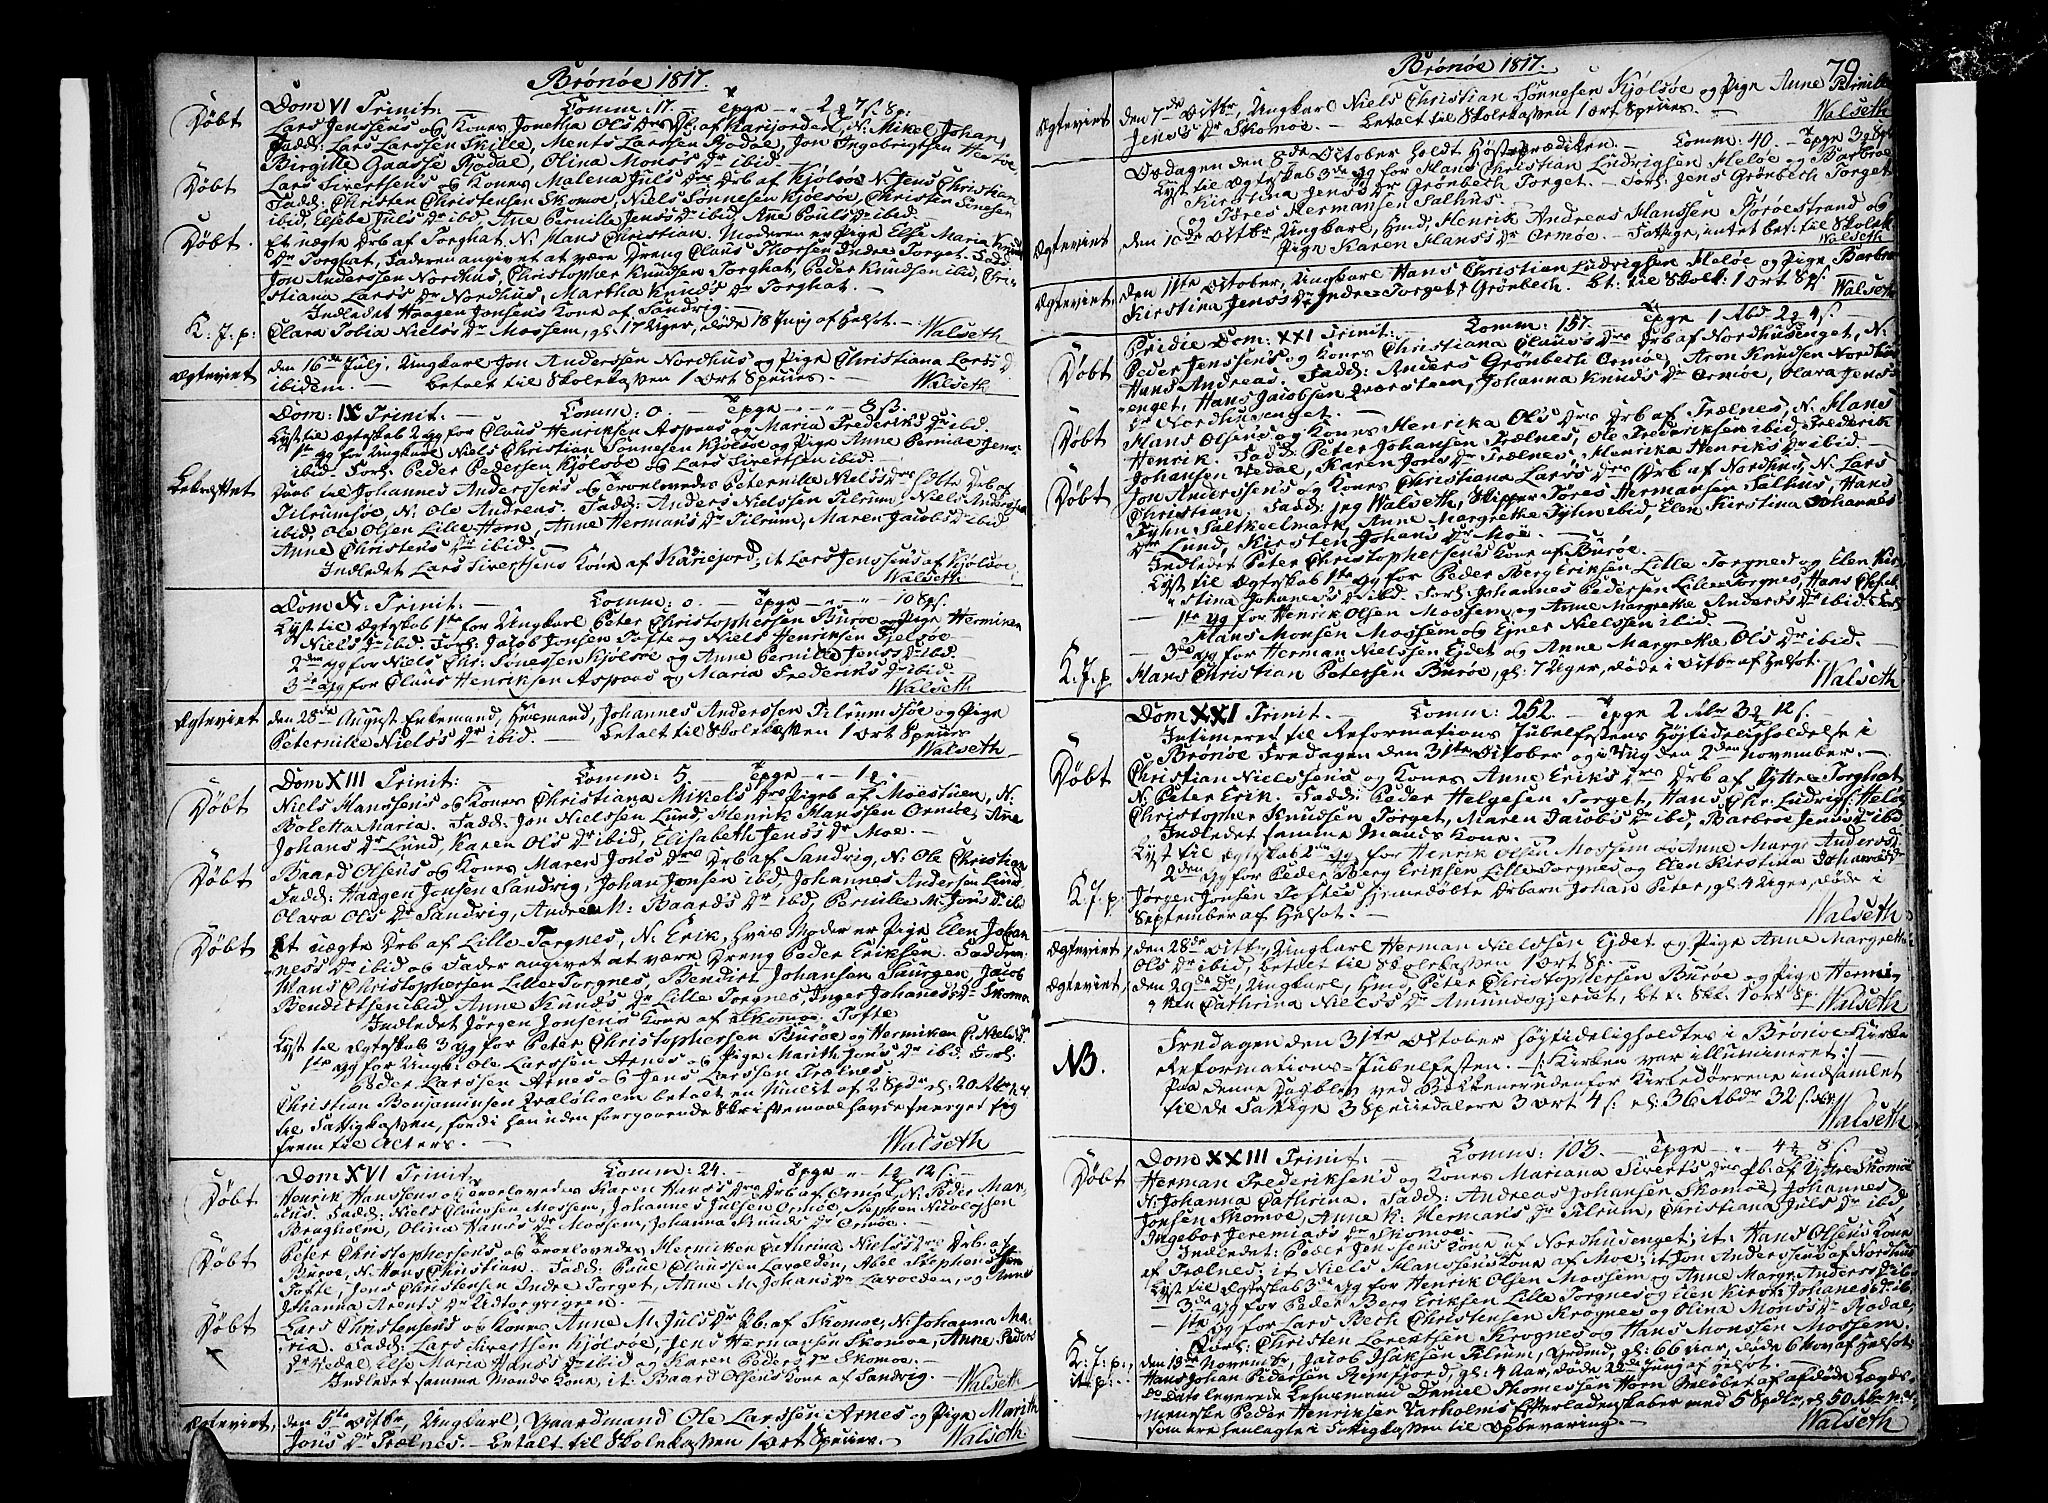 Brónöe 1817.
Döbt
Dom VI Trinit: — Comm: 17. — Tpge " - 2 q 7 s. Sp:
Lars Jenssens og Kones Jonetha Ols Dr Db. af Karijorden, N: Mikel Johan
Fadd: Lars Larssen Skille, Ments Larssen Rodal, Jon Ingebrigtsen
Birgitte Gaasse Rodal, Olina Mons Dr ibid.
Döbt
Lars Sivertsens og Kones Malena Juls Dr Drb af Kjölsöe N: Jens Christian
Fadd: Christen Christensen Skomoe, Niels Sönnesen Kjölsöe, Christen Sönesen
ibid, Elsebe Juls Dr ibid, Ane Pernilla Jens's Dr ibid, Ane Pauls Dr ibid.
Döbt.
Et uægte Drb af Torghat, N: Hans Christian. Moderen er Pige Else Maria Knuds
Dr Torghat, Faderen angivet at være Dreng Claus Thorsen Indre Torget. Fadd:
Jon Anderssen Nordhus, Christopher Knudsen Torghat, Peder Knudsen ibid, Cri-
stiana Lars's Dr Nordhus, Martha Knuds Dr Torghat. —
Indledet Haagen Jonsens Kone af Sandvig. —
K: J: p:
Clara Tobia Niels's Dr Mossem, gl: 17 Uger, döde 18 Junj af Helsot. — Walseth
Ægteviet
den 16de Julj, Ungkarl Jon Anderssen Nordhus og Pige Christiana Lars's Dr
ibidem. — Betalt til Skolekassen 1 Ort Species. — Walseth
Dom: IX Trinit. — Comm: 0. — Tpge — " 8 ß. —
Lyst til Ægteskab 2 Gg for Claus Henriksen Aspaas og Maria Frederiks Dr ibid.
1ste Gg for Ungkarl Niels Christian Sönnesen Kjölsöe og Pige Anne Pernille Jens's
ibid. Forl: Peder Pedersen Kjölsöe og Lars Sivertsen ibid. —
Bekræftet
Daab til Johannes Anderssens og Trolovedes Peternille Niels's Dr ægte Drb af
Tilrumsöe, N: Ole Andreas. Fadd: Anders Nielssen Tilrum, Niels Anderssen
ibid, Ole Olsen Lille Horn, Anne Hermans Dr Tilrum, Maren Jacobs Dr ibid
Anne Christens Dr ibid. —
Indledet Lars Sivertsens Kone af Kariejord, it Lars Jenssens af Kjölsöe,
Walseth
Dom X: Trinit: — Comm: 0. — Tpge — " — " — 10 Sps. —
Lyst til Ægteskab 1ste for Ungkarl Peter Christophersen Buröe og Pige Herminen
Niels's Dr ibid. Forl: Jacob Jonsen Tofte og Niels Henriksen Fjelsöe. —
— 2den Gg for Niels Chr: Sönessen Kjölsöe og Anne Pernille Jens's Dr ibid. —
— 3die Gg for Claus Henriksen Aspaas og Maria Frederiks Dr ibid. —
Walseth
Ægteviet
den 28de August Enkemand, Huusmand, Johannes Anderssen Tilrumssöe og Pige
Peternille Niels's Dr ibid. — Betalt til Skolekassen 1 Ort Species
Walseth
Döbt
Dom XIII Trinit: — Comm: 5. — Tpge " 1 q " —
Niels Hanssens og Kones Christiana Mikels Dr Pigeb af Moestuen, N:
Boletta Maria. Fadd: Jon Nielssen Lund, Henrik Hanssen Ormöe, Ane
Johans Dr Lund, Karen Ols Dr ibid, Elisabeth Jens's Dr Moe. —
Döbt
Baard Olsens og Kones Maren Jons Dr Drb af Sandvig, N: Ole Christian
Fadd: Haagen Jonsen Sandvig, Johan Jonsen ibd, Johannes Andersen Lund
Olava Ols Dr Sandvig, Andrea M: Baards Dr ibd, Pernille M: Jons Dr ibd
Döbt
Et uægte Drb af Lille-Torgnes, N: Erik, hvis Moder er Pige Elen Johan
nes's Dr ibid og Fader angivet at være Dreng Peder Eriksen. Faddere
Hans Christophersen Lille-Torgnes, Bendict Johansen Saurgen, Jacob
Bendictsen ibid, Anne Knuds Dr Lille Torgnes, Inger Johanes's Dr Skomo
Indledet Jörgen Jonsens Kone af Skomoe Tofte
Lyst til Ægteskab 3 Gg for Peter Christophersen Buröe og Herminken C. Niels's Dr
1ste Gg for Ungk: Ole Larssen Arnes og Pige Marith Jons Dr ibid. Forl:
Peder Larssen Arnes og Jens Larssen Trælnes.
Christian Benjaminsen Qvalsholm betalt en Mulct af 2 Spdr el: 20 Rbd n.v.
til Fattigkassen, fordi han uden foregaaende Skriftemaal havde trenget sig
frem til Alters. — Walseth
Döbt
Dom XVI Trinit: — Comm: 24. — Tpge " 1 q 12 s. —
Henrik Hanssens og Trolovedes Karen Hans's Dr Drb af Ormöe, N: Peder Mar-
cus. Fadd: Niels Claussen Mossem, Johannes Julsen Ormöe, Stephen Nicolaysen
Brugholm, Olina Hans's Dr Mossem, Johanna Knuds Dr Ormöe. —
Döbt
Peter Christophersens og Trolovedes Herminken Cathrina Niels's Dr Drb. af
Buröe, N: Hans Christian. Fadd: Paul Claussen Lavolden, Abel Stephensen
Tofte, Jens Christensen Indre Torget, Anne M: Johans Dr Lavolden, og Anne
Johanna Arents Dr Udtorgvigen. —
Döbt
Lars Christensens og Kones Anne M. Juls Dr Pb. af Skomoe, N: Johanna Ma-
ria. Fadd: Lars Sivertsen Kjölsöe, Jens Hermansen Skomoe, Anne Peders
Dr Vedal Else Maria Hans's Dr ibid og Karen Peders Dr Skomoe. —
Indledet samme Mands Kone, it: Baard Olsens Kone af Sandvig. — Walseth
Ægteviet,
den 5te Octbr, Ungkarl, Gaardmand Ole Larssen Arnes og Pige Marith
Jons Dr Trælnes. — Betalt til Skolekassen 1 Ort Species. — Walseth
Brónöe 1817.
79
Ægteviet
den 7de Octbr, Ungkarl Niels Christian Sönnesen Kjölsöe og Pige Anne Petrinilla
Jens's Dr Skomoe. — Betalt til Skolekassen 1 Ort Species. — Walseth
Onsdagen den 8de October holdt Höstprædiken. — Comm: 40. — Tpge 3 q 8 ps
Lyst til Ægteskab 3de Gg for Hans Christian Ludvigsen Heløe og Barbroe
Kirstina Jens's Dr Grönbech Torget. — Forl: Jens Grönbech Torget
og Töres Hermansen Salhus.
Ægteviet
den 10de Octbr, Ungkarl, Hmd, Henrik Andreas Hanssen Röröestrand og
Pige Karen Hans's Dr Ormöe. — Fattige, intet bet: til Skolek
Walseth
Ægteviet,
den 11te October, Ungkarl Hans Christian Ludvigsen Helöe og Pige Barbroe
Kirstina Jens's Dr Indre-Torget, Grönbech. Bt: til Skolk: 1 Ort Sps. Walseth
Döbt
Pridie Dom: XXI Trinit: Comm: 157. — Tpge 1 Rbd 2 q 4 s. —
Peder Jenssens og Kones Christiana Claus's Dr Drb af Nordhusenget, N:
Hans Andreas. Fadd: Anders Grönbech Ormöe, Aron Knudsen Nordhus
enget, Hans Jacobsen Torsteen, Johanna Knuds Dr Ormöe, Olava Jens's
Dr Nordhusenget. —
Döbt
Hans Olsens og Kones Henrika Ols Dr Drb af Trælnes, N: Hans
Henrik. Fadd: Peter Johansen Trælnes, Ole Frederiksen ibid Frederik
Johansen Vedal, Karen Jons Dr Trælnes, Henrika Henriks Dr ibid.
Döbt
Jon Anderssens og Kones Christiana Lars's Dr Drb af Nordhus, N: Lars
Christian. Fadd: Jeg Walseth, Skipper Töres Hermansen Salhus, Hans
Tyhn Saltkeelmark, Anne Margrethe Tyhn ibid, Elen Kirstina Johannes
Dr Lund, Kirsten Johans Dr Moe. —
Indledet Peter Christophersens Kone af Buröe. —
Lyst til Ægteskab 1ste Gg for Peder Berg Eriksen Lille Torgnes og Elen Kir-
stina Johanes's Dr ibid. Forl: Johannes Pedersen Lille-Torgnes, Hans ibid.
— 1ste Gg for Henrik Olsen Mossem og Anne Margrethe Anders's Dr ibid. Forl:
Hans Monsen Mossem og Ejner Nielssen ibid.
— 3die Gg for Herman Nielssen Ejdet og Anne Margretha Ols Dr ibid. —
K. J. p
Hans Christian Petersen Buröe, gl: 7 Uger, döde i Octbr af Helsot. — Walseth
Dom XXI Trinit. — Comm: 252. — Tpge 2 Rbr 3 q 12 s. —
Intimeret til Reformations Jubelfestens Höjtideligholdelse i
Brönöe Fredagen den 31te October og i Viig den 2den November. —
Döbt
Christian Nielssens og Kones Anne Eriks Dr Drb af Yttre Torghat
N: Peter Erik. Fadd: Peder Helgesen Torget, Hans Chr: Ludvigs: Helöe
Christopher Knudssen Torget, Maren Jacobs Dr ibid, Barbroe Jens's Dr ibd
Indledet samme Mands Kone. —
Lyst til Ægteskab 2den Gg for Henrik Olsen Mossem og Anne Margr: Anders's Dr
2den Gg for Peder Berg Eriksen Lille-Torgnes og Elen Kirstina Johanes's Dr
K. J. p:
Jörgen Jonsen Toftes hjemedöbte Drbarn Johan Peter, gl: 4 Uger, döde i
September af Helsot. — Walseth
Ægteviet,
den 28de Octbr, Ungkarl Herman Nielssen Ejdet og Pige Anne Margretha
Ols Dr ibid, betalt til Skolekassen 1 Ort Sp. —
Ægteviet,
den 29de Do, Ungkarl, Hmd, Peter Christophersen Buröe og Pige Hermi-
ken Cathrina Niels's Dr Amundsgjerdet, bt t. Skk: 1 Ort Sp. Walseth
NB.
Fredagen den 31te October höjtideligholdtes i Brönöe Kirke
Reformations-Jubelfesten. — /: Kirken var illumineret :/ —
Paa denne Dag blev ved Bækkener udenfor Kirkedörrene indsamlet
til de Fattige 3 Speciedalere 3 Ort 4 s: el: 36 Rbdr 32 s.
Walseth
Döbt
Dom XXIII Trinit: — Comm: 103. — Tpge " 4 q 8 s
Herman Frederiksens og Kones Mariana Siverts Dr Pb. af Yttre Skomoe
N: Johanna Cathrina. Fadd: Andreas Johansen Skomoe, Johannes
Jonsen Skomoe, Anne K: Hermans Dr Tilrum, Christiana Juls Dr ibid,
Ingebor Jeremias's Dr Skomoe. —
Indledet: Peder Jenssens Kone af Nordhusenget; it: Hans Olsens Kone
af Trælnes; it Niels Hanssens Kone af Moe; it Jon Anderssens af Nordhus
Lyst til Ægteskab 3de Gg for Henrik Olsen Mossem og Anne Margr: Anders's Dr ib
— 3de Gg for Peder Berg Eriksen Lille Torgnes og Elen Kirst: Johanes Dr ib,
— 1te Gg for Lars Bech Christensen Krognes og Olina Mons Dr Rodal,
Forl: Christen Lorentsen Krognes og Hans Monssen Mossem.
K: J: p:,
den 19de Novembr, Jacob Isaksen Tilrum, Grdmd, gl: 66 Aar, döde 6 Nov af Helsot
it p: .
Hans Johan Pedersen gl: 4 Aar, döde 22de Junj af Helsot.
Do Dato leverede Lehnsmand Daniel Thomessen Horn Belöbet af afdöde Lægds-
menneske Peder Henriksen Varholms Efterladenskaber med 5 Spdlr, el 50 Rbr n:v:
som ere henlagte i Fattigkassen til Opbevaring. — Walseth